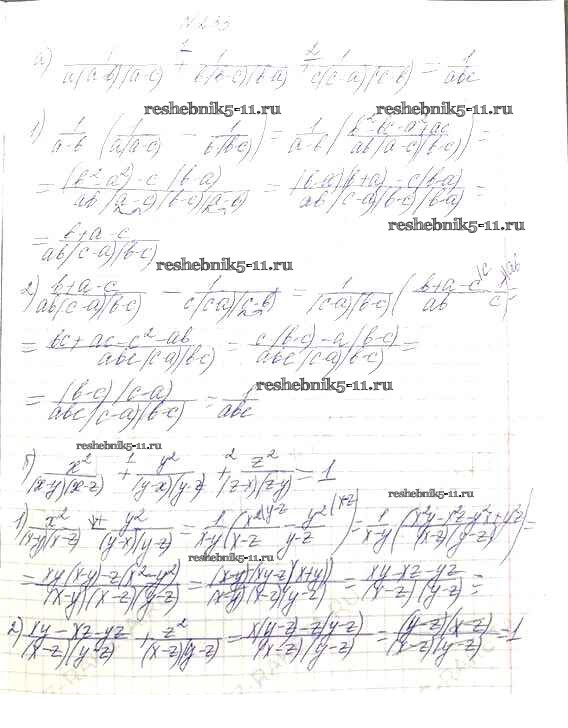 N 233
a) 1/(a(a-b)(a-c)) + 1/(b(b-c)(b-a)) + 1/(c(c-a)(c-b)) = 1/abc
reshebnik5-11.ru reshebnik5-11.ru
1) 1/(a-b) (1/(a(a-c)) - 1/(b(b-c))) = 1/(a-b) ((b²-bc-a²+ac)/(ab(a-c)(b-c))) =
= ((b²-a²)-c(b-a))/(ab(a-b)(b-c)(a-c)) = ((b-a)(b+a)-c(b-a))/(ab(c-a)(b-c)(b-a)) =
reshebnik5-11.ru
= (b+a-c)/(ab(c-a)(b-c))
reshebnik5-11.ru
2) (b+a-c)/(ab(c-a)(b-c)) - 1/(c(c-a)(c-b)) = 1/((c-a)(b-c)) ((b+a-c)/ab
= (bc+ac-c²-ab)/(abc(c-a)(b-c)) = (c(b-c)-a(b-c))/(abc(c-a)(b-c)) =
reshebnik5-11.ru
= ((b-c)(c-a))/(abc(c-a)(b-c)) = 1/abc
reshebnik5-11.ru
б) x²/((x-y)(x-z)) + y²/((y-x)(y-z)) + z²/((z-x)(z-y)) = 1
reshebnik5-11.ru
1) x²/((x-y)(x-z)) + y²/((y-x)(y-z)) = 1/(x-y) (x²/(x-z) - y²/(y-z)) = 1/(x-y) ((x²y-x²z-y²x+y²z)/((x-z)(y-z))) =
reshebnik5-11.ru
= (xy(x-y)-z(x²-y²))/((x-y)(x-z)(y-z)) = ((x-y)(xy-z)(x+y))/((x-y)(x-z)(y-z)) = (xy-xz-yz)/((x-z)(y-z)) =
2) (xy-xz-yz)/((x-z)(y-z)) + z²/((x-z)(y-z)) = (x(y-z)-z(y-z))/((x-z)(y-z)) = ((y-z)(x-z))/((x-z)(y-z)) = 1